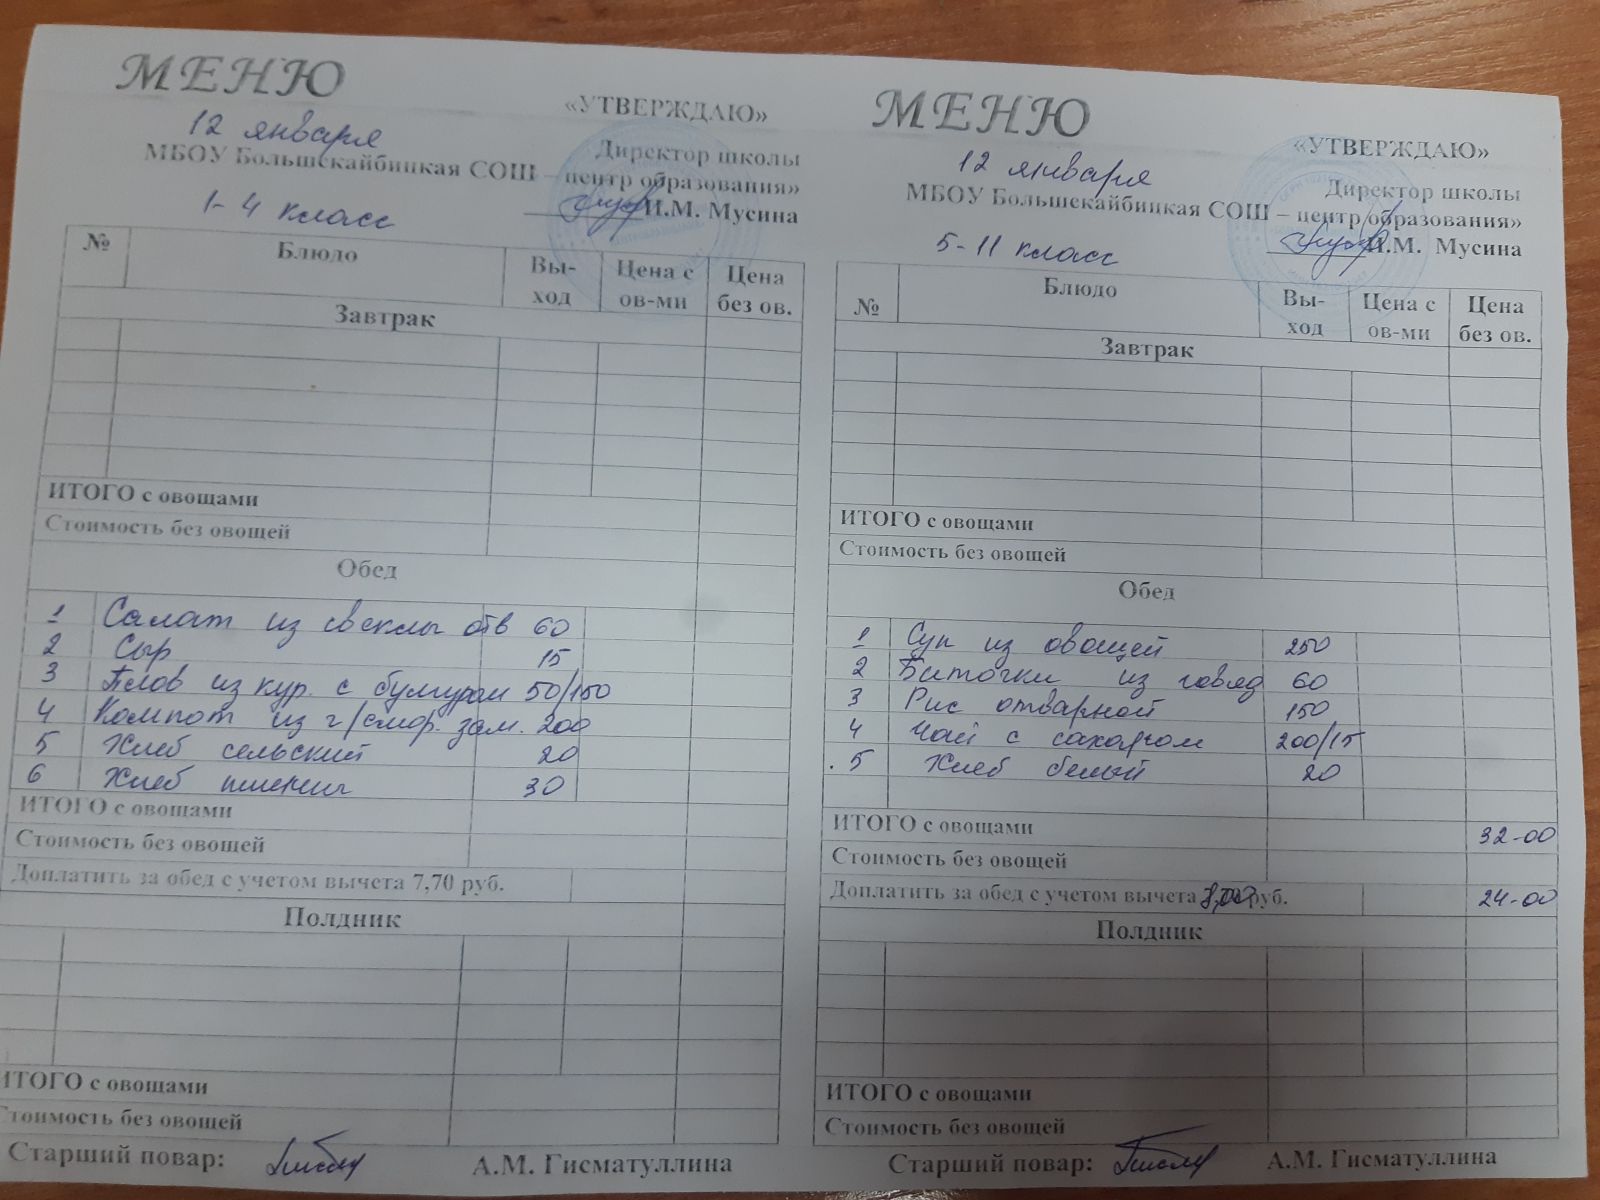 МЕНЮ
«УТВЕРЖДАЮ»
12 января
Директор школы
МБОУ Большекайбицкая СОШ – центр образования»
И.М. Мусина
1-4 класс
№ Блюдо Вы-ход Цена с ов-ми Цена без ов.
Завтрак
ИТОГО с овощами
Стоимость без овощей
Обед
1 Салат из свеклы отв 60
2 Сыр 15
3 Плов из кур. с булгуром 50/150
4 Компот из г/смор. зам. 200
5 Хлеб сельский 20
6 Хлеб пшенич 30
ИТОГО с овощами
Стоимость без овощей
Доплатить за обед с учетом вычета 7,70 руб.
Полдник
ИТОГО с овощами
Стоимость без овощей
Старший повар: А.М. Гисматуллина
МЕНЮ
«УТВЕРЖДАЮ»
12 января
Директор школы
МБОУ Большекайбицкая СОШ – центр образования»
И.М. Мусина
5-11 класс
№ Блюдо Вы-ход Цена с ов-ми Цена без ов.
Завтрак
ИТОГО с овощами
Стоимость без овощей
Обед
1 Суп из овощей 250
2 Биточки из говяд 60
3 Рис отварной 150
4 Чай с сахаром 200/15
5 Хлеб белый 20
ИТОГО с овощами 32-00
Стоимость без овощей
Доплатить за обед с учетом вычета руб. 24-00
Полдник
ИТОГО с овощами
Стоимость без овощей
Старший повар: А.М. Гисматуллина